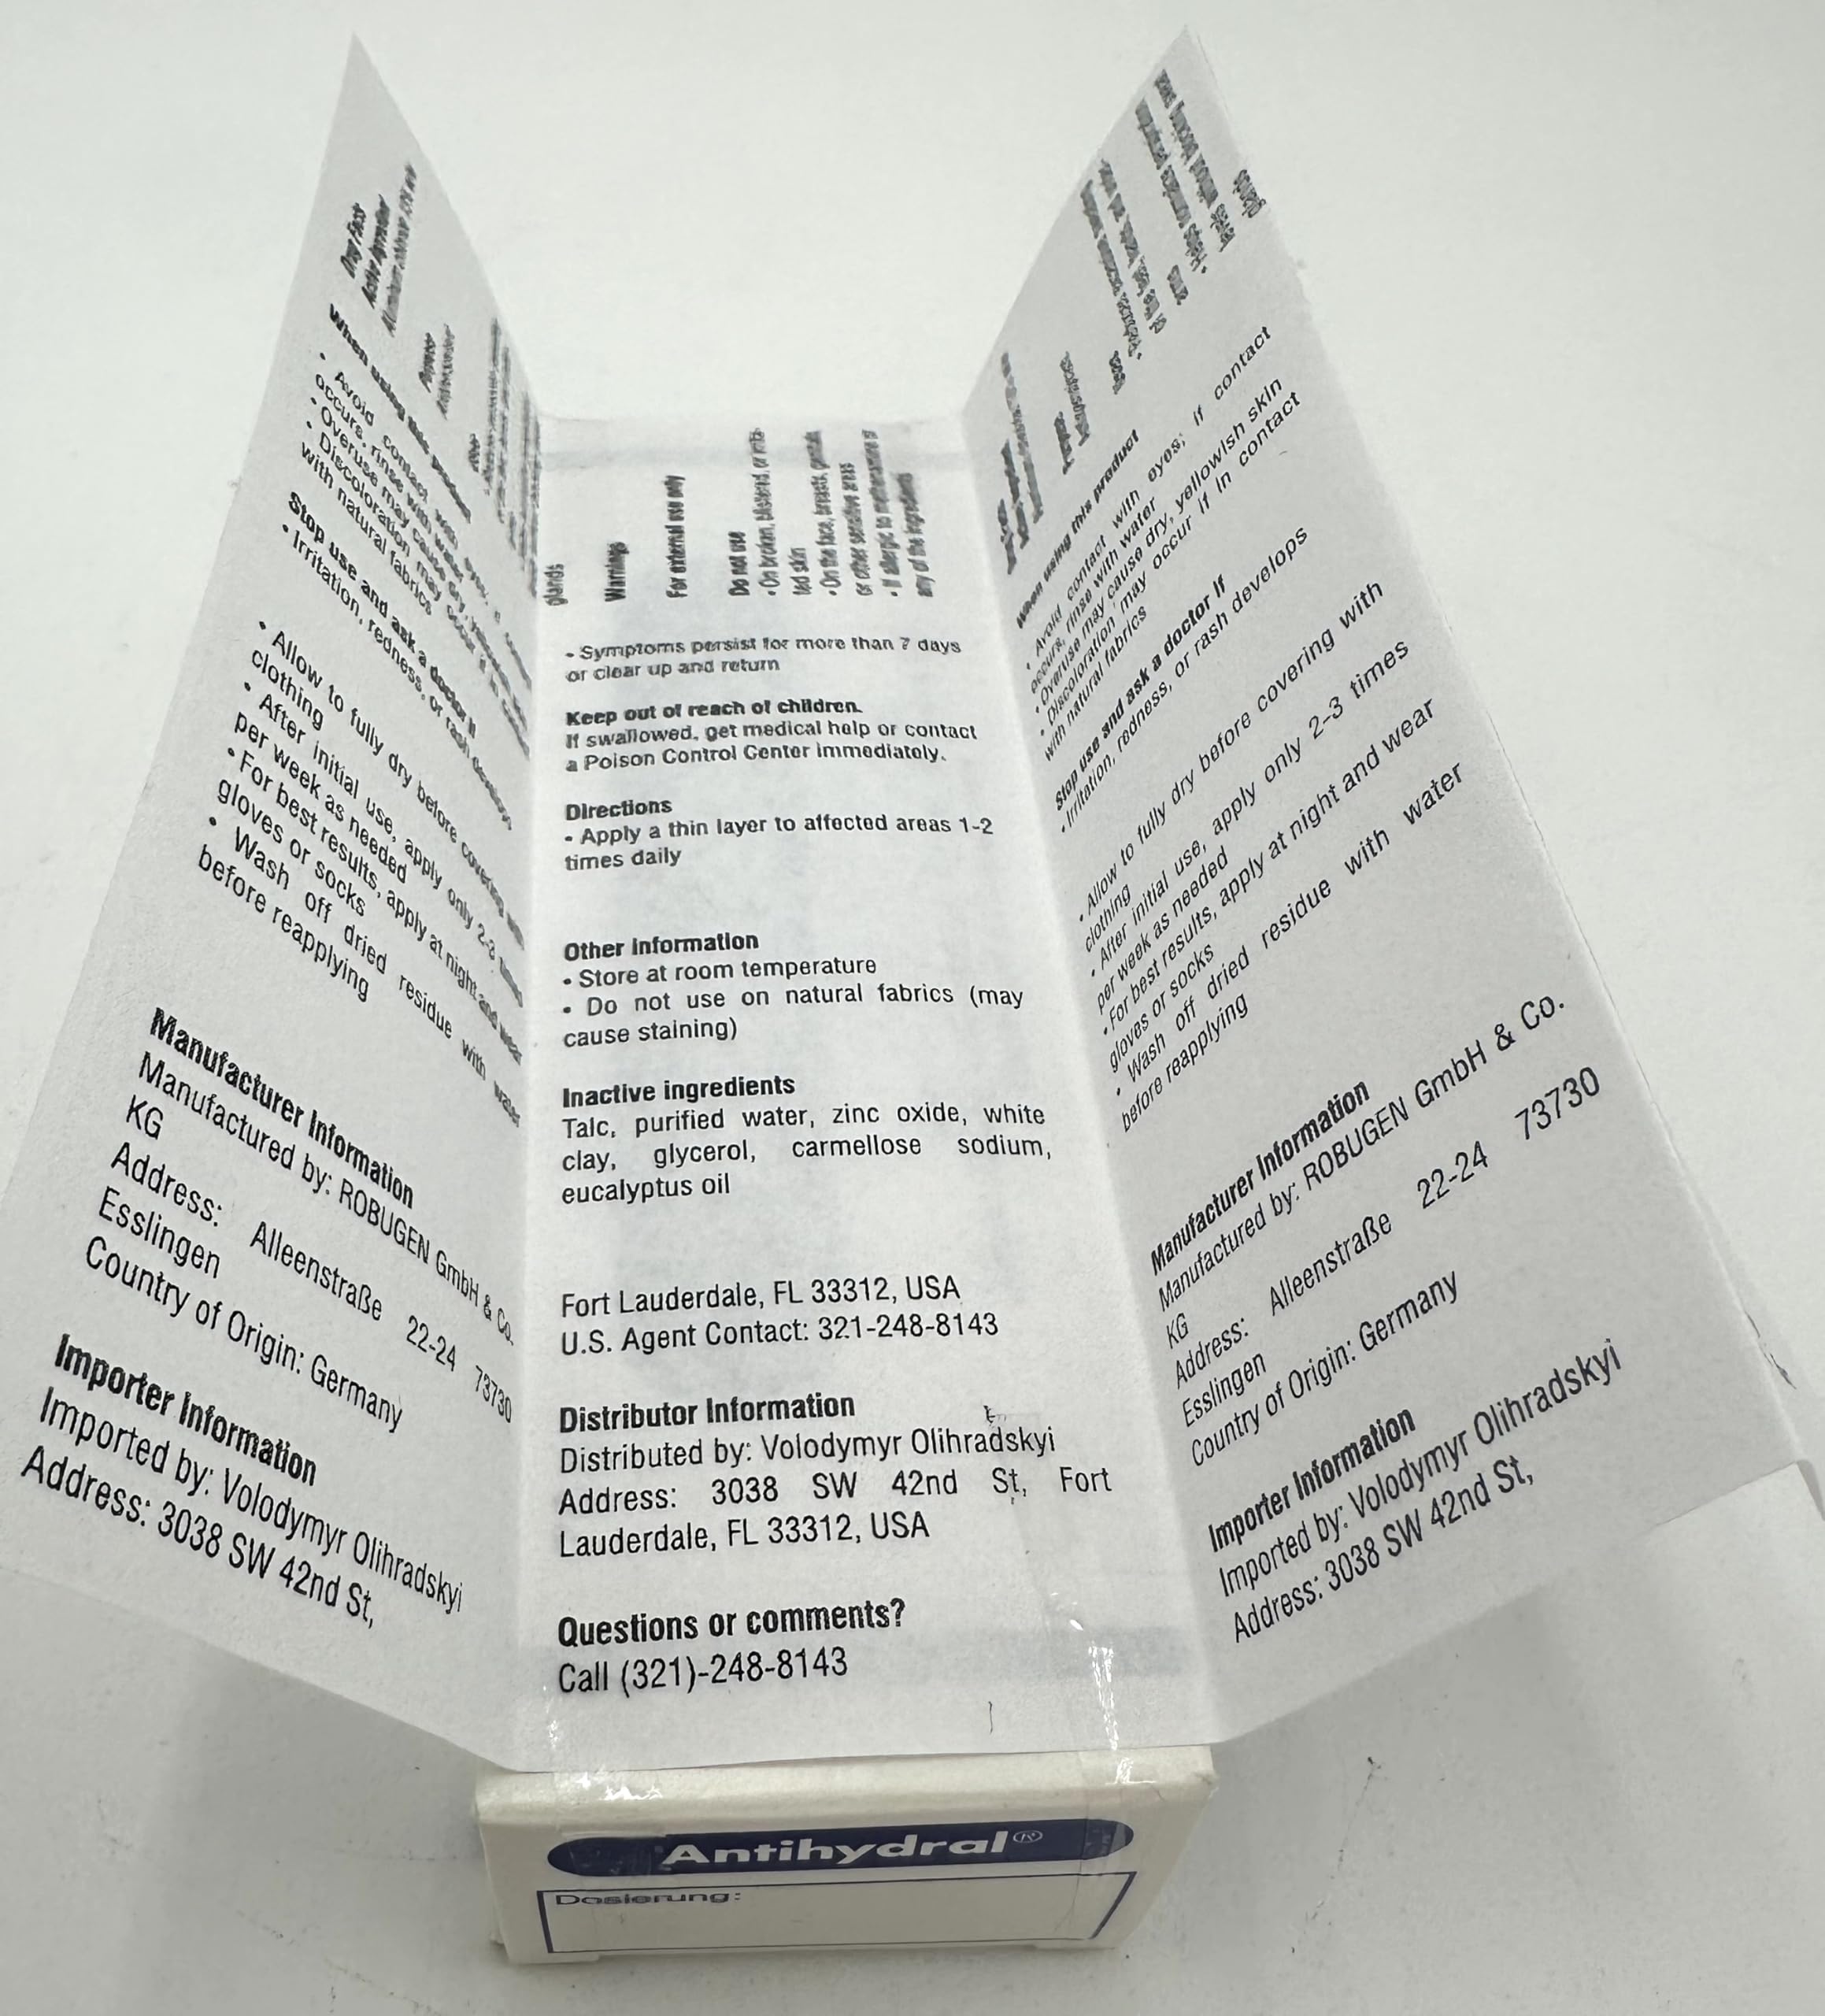 Drug Facts
Active Ingredient
Purpose
When using this product
• Avoid contact with eyes; if contact
occurs, rinse with water
• Overuse may cause dry, yellowish skin
• Discoloration may occur if in contact
with natural fabrics
Stop use and ask a doctor if
• Irritation, redness, or rash develops
• Allow to fully dry before covering with
clothing
• After initial use, apply only 2-3 times
per week as needed
• For best results, apply at night and wear
gloves or socks
• Wash off dried residue with water
before reapplying
Manufacturer Information
Manufactured by: ROBUGEN GmbH & Co.
KG
Address: Alleenstraße 22-24 73730
Esslingen
Country of Origin: Germany
Importer Information
Imported by: Volodymyr Olihradskyi
Address: 3038 SW 42nd St,
glands
Warnings
For external use only
Do not use
• On broken, blistered, or irrita-
ted skin
• On the face, breasts, genitals
or other sensitive areas
• If allergic to methenamine or
any of the ingredients
• Symptoms persist for more than 7 days
or clear up and return
Keep out of reach of children.
If swallowed, get medical help or contact
a Poison Control Center immediately.
Directions
• Apply a thin layer to affected areas 1-2
times daily
Other information
• Store at room temperature
• Do not use on natural fabrics (may
cause staining)
Inactive ingredients
Talc, purified water, zinc oxide, white
clay, glycerol, carmellose sodium,
eucalyptus oil
Fort Lauderdale, FL 33312, USA
U.S. Agent Contact: 321-248-8143
Distributor Information
Distributed by: Volodymyr Olihradskyi
Address: 3038 SW 42nd St, Fort
Lauderdale, FL 33312, USA
Questions or comments?
Call (321)-248-8143
glands
When using this product
• Avoid contact with eyes; if contact
occurs, rinse with water
• Overuse may cause dry, yellowish skin
• Discoloration may occur if in contact
with natural fabrics
Stop use and ask a doctor if
• Irritation, redness, or rash develops
• Allow to fully dry before covering with
clothing
• After initial use, apply only 2-3 times
per week as needed
• For best results, apply at night and wear
gloves or socks
• Wash off dried residue with water
before reapplying
Manufacturer Information
Manufactured by: ROBUGEN GmbH & Co.
KG
Address: Alleenstraße 22-24 73730
Esslingen
Country of Origin: Germany
Importer Information
Imported by: Volodymyr Olihradskyi
Address: 3038 SW 42nd St,
Antihydral®
Dosierung: